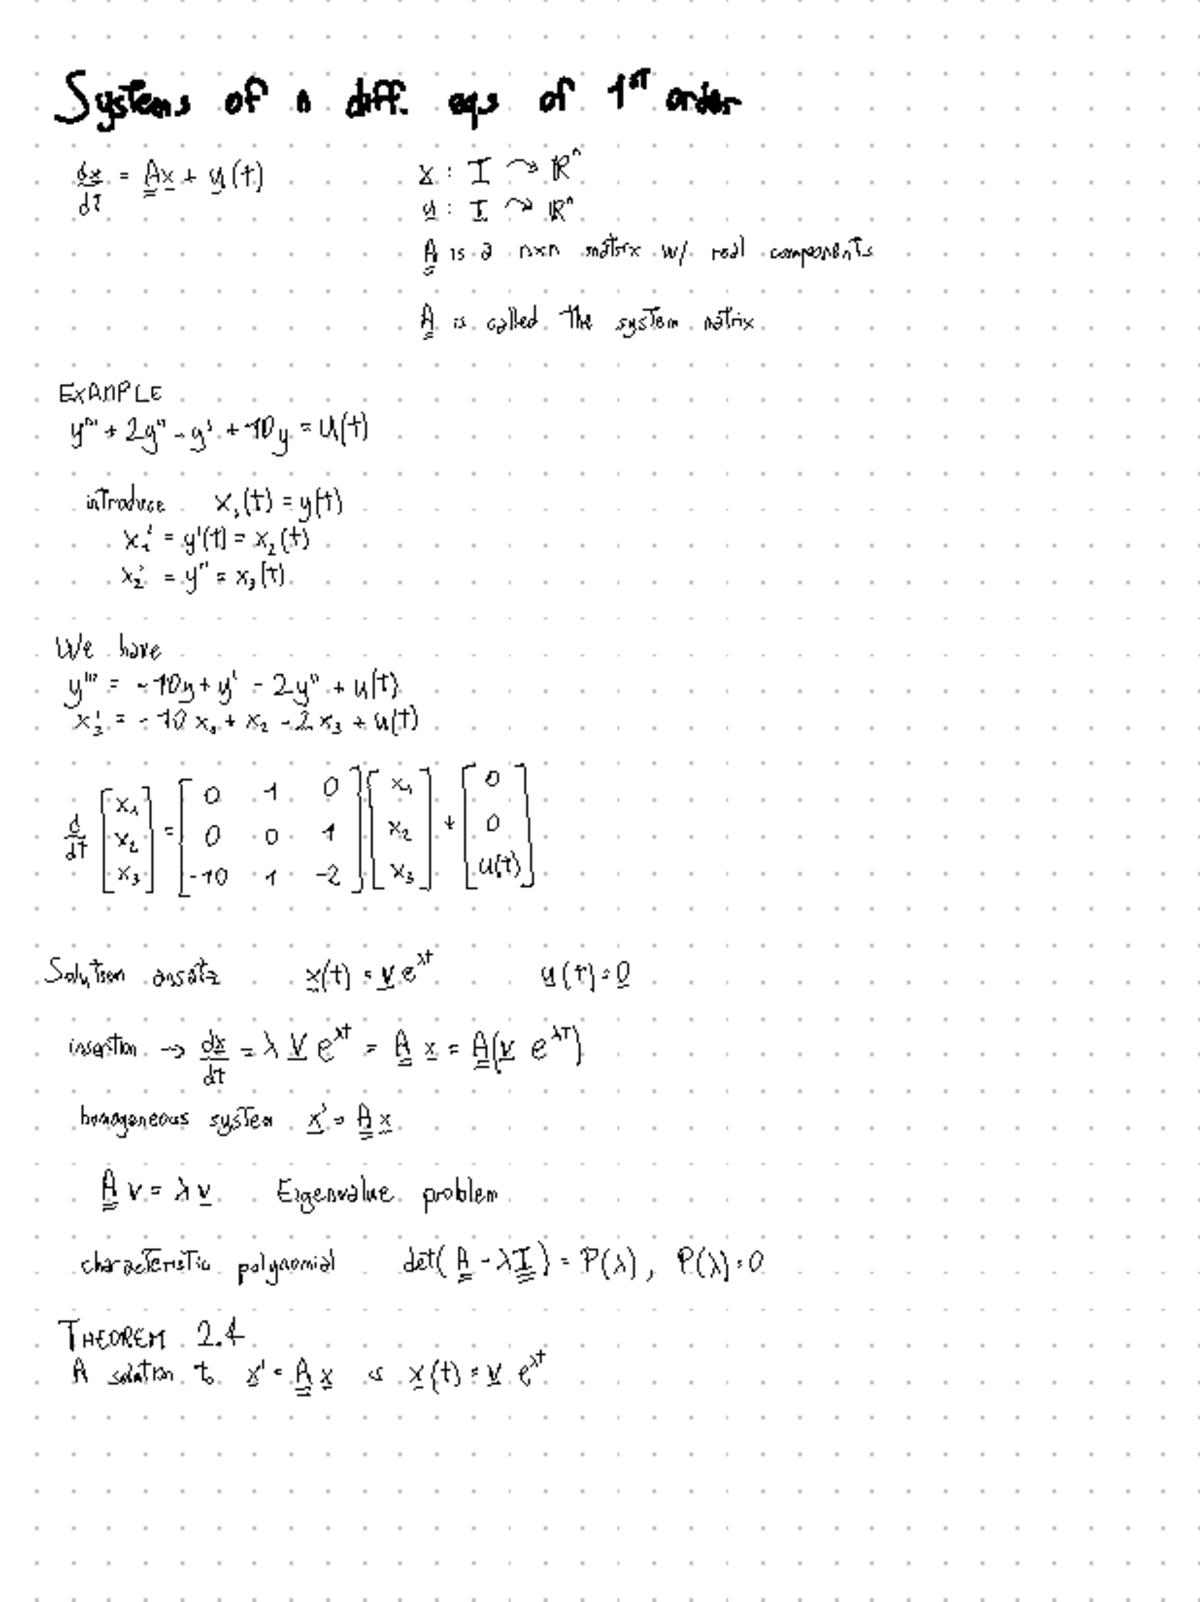 Systems of n diff. eqs of 1ST order
dx/dt = Ax + u(t)
x : I ↷ ℝⁿ
u : I ↷ ℝⁿ
A is a nxn matrix w/ real components
A is called the system matrix
EXAMPLE
y''' + 2y'' - y' + 10y = u(t)
introduce x₁(t) = y(t)
x₁' = y'(t) = x₂(t)
x₂' = y'' = x₃(t)
We have
y''' = -10y + y' - 2y'' + u(t)
x₃' = -10x₁ + x₂ - 2x₃ + u(t)
d/dt [x₁ x₂ x₃] = [0 1 0; 0 0 1; -10 1 -2] [x₁ x₂ x₃] + [0 0 u(t)]
Solution ansatz x(t) = v e^λt u(t) = 0
insertion → dx/dt = λ v e^λt = A x = A(v e^λt)
homogeneous system x' = A x
A v = λ v Eigenvalue problem
characteristic polynomial det(A - λI) = P(λ), P(λ) = 0
THEOREM 2.4
A solution to x' = A x is x(t) = v e^λt